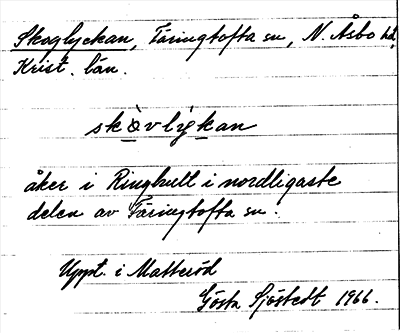 Skoglyckan, Färingtofta sn, N. Åsbo hd,
Krist. län.
skòvlỳkan
åker i Ringhult i nordligaste
delen av Färingtofta sn.
Uppt. i Matteröd
Gösta Sjöstedt 1966.